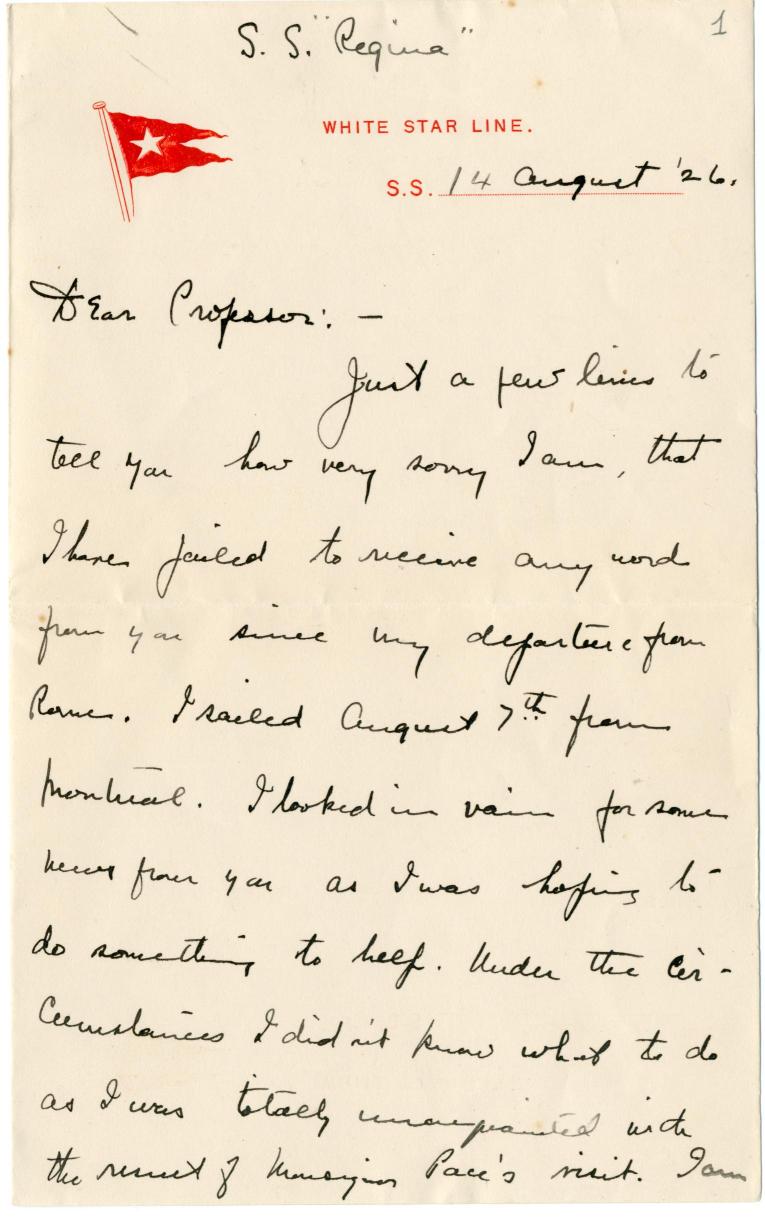 1
S. S. "Regina"
WHITE STAR LINE.
S.S. 14 August '26.
Dear Professor: —
Just a few lines to
tell you how very sorry I am, that
I have failed to receive any word
from you since my departure from
Rome. I sailed August 7th from
Montreal. I looked in vain for some
news from you as I was hoping to
do something to help. Under the cir-
cumstances I did n't know what to do
as I was totally unacquainted with
the result of Monsignor Pace's visit. I am